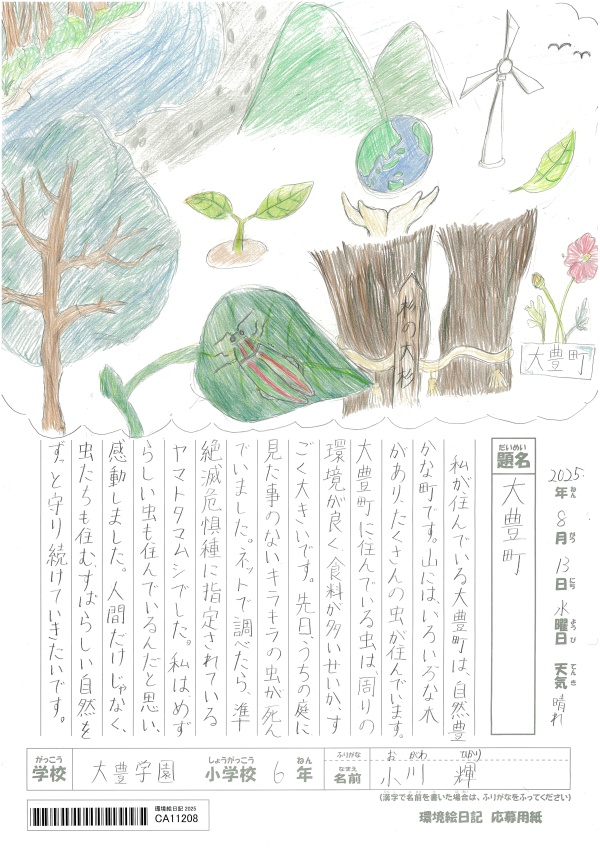 杉の大杉
大豊町
2025年 8月 13日 水曜日 天気 晴れ
ねん がつ にち ようび てんき
だいめい
題名
大豊町
私が住んでいる大豊町は、自然豊
かな町です。山には、いろいろな木
があり、たくさんの虫が住んでいます。
大豊町に住んでいる虫は、周りの
環境が良く、食料が多いせいか、す
ごく大きいです。先日、うちの庭に
見た事のないキラキラの虫が死ん
でいました。ネットで調べたら、準
絶滅危惧種に指定されている
ヤマトタマムシでした。私はめず
らしい虫も住んでいるんだと思い、
感動しました。人間だけじゃなく、
虫たちも住む、すばらしい自然を
ずっと守り続けていきたいです。
がっこう しょうがっこう ねん
学校 大豊学園 小学校 6年
ふりがな おがわ ひかり
なまえ
名前 小川 輝
(漢字で名前を書いた場合は、ふりがなをふってください)
環境絵日記 2025
CA11208
環境絵日記 応募用紙